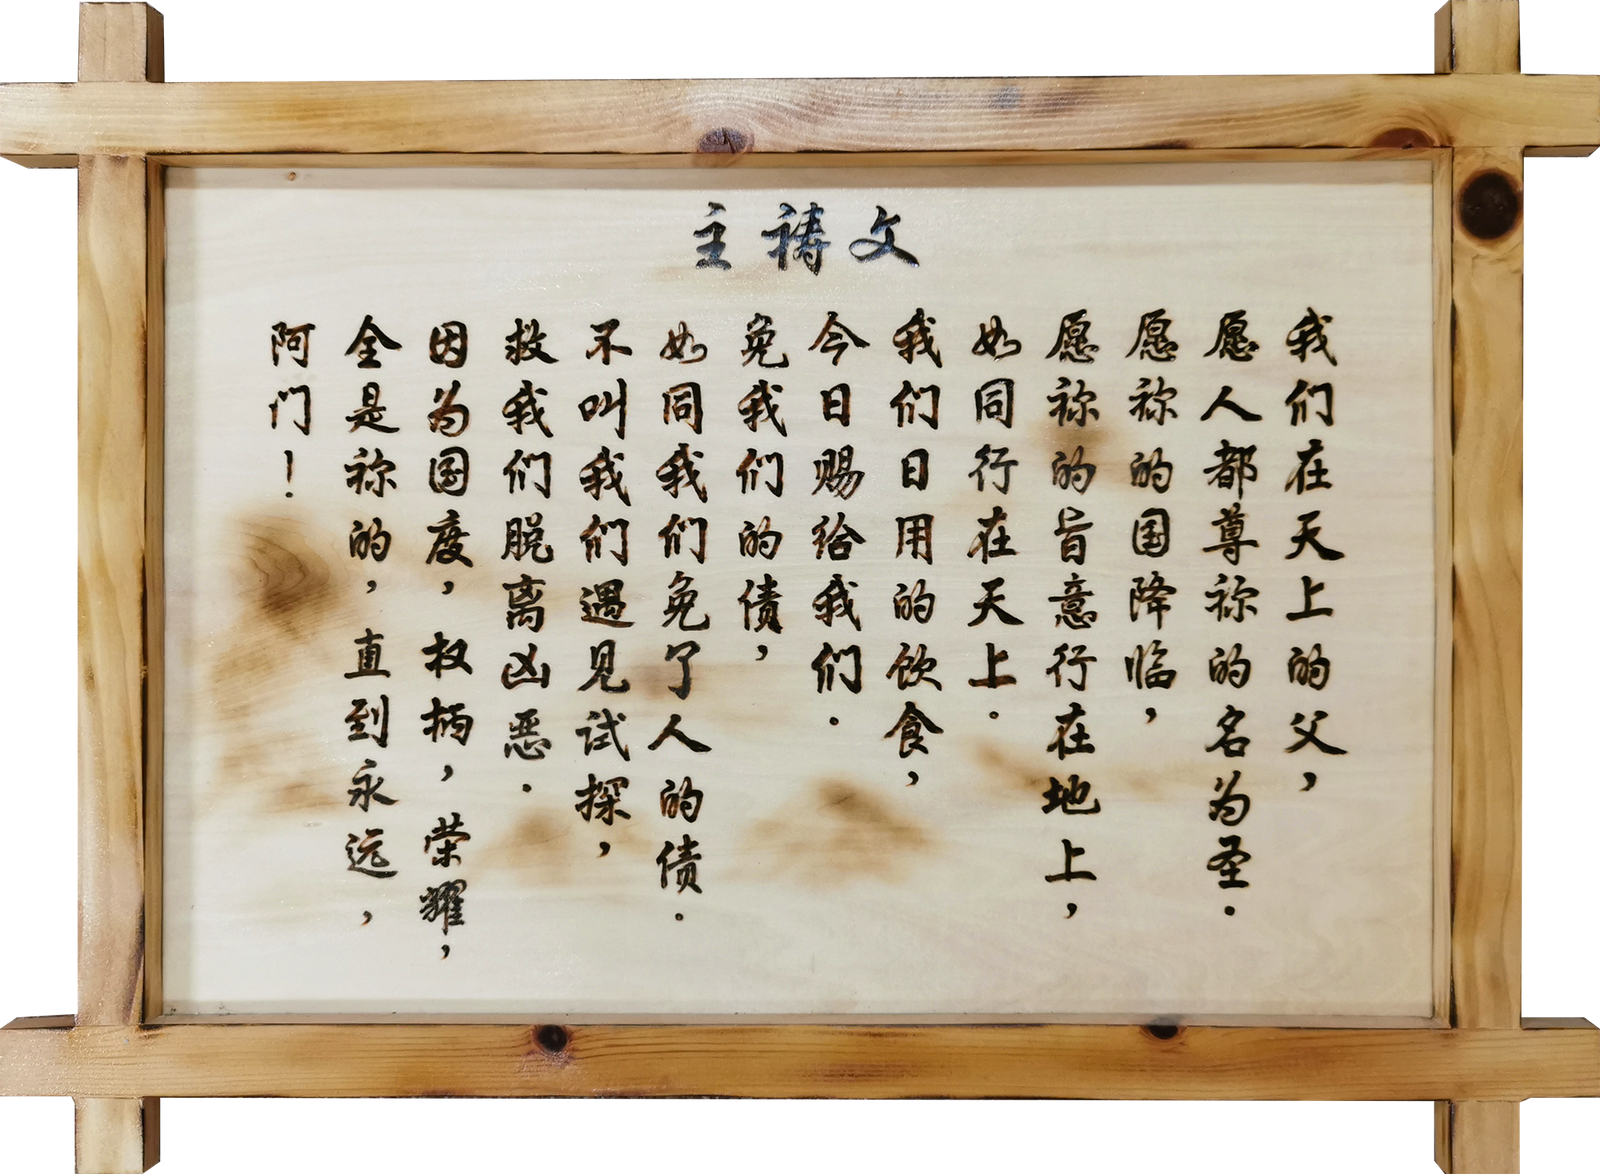 主祷文
我们在天上的父，
愿人都尊祢的名为圣.
愿祢的国降临，
愿祢的旨意行在地上，
如同行在天上.
我们日用的饮食，
今日赐给我们.
免我们的债，
如同我们免了人的债.
不叫我们遇见试探，
救我们脱离凶恶.
因为国度，权柄，荣耀，
全是祢的，直到永远，
阿门！